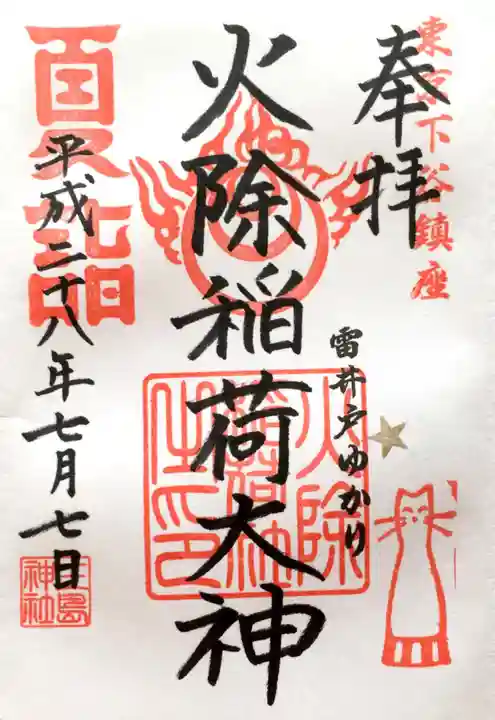 東京下谷鎮座
奉拝
雷井戸ゆかり
火除稲荷大神
火除
稲荷社
之印
平成二十八年七月七日